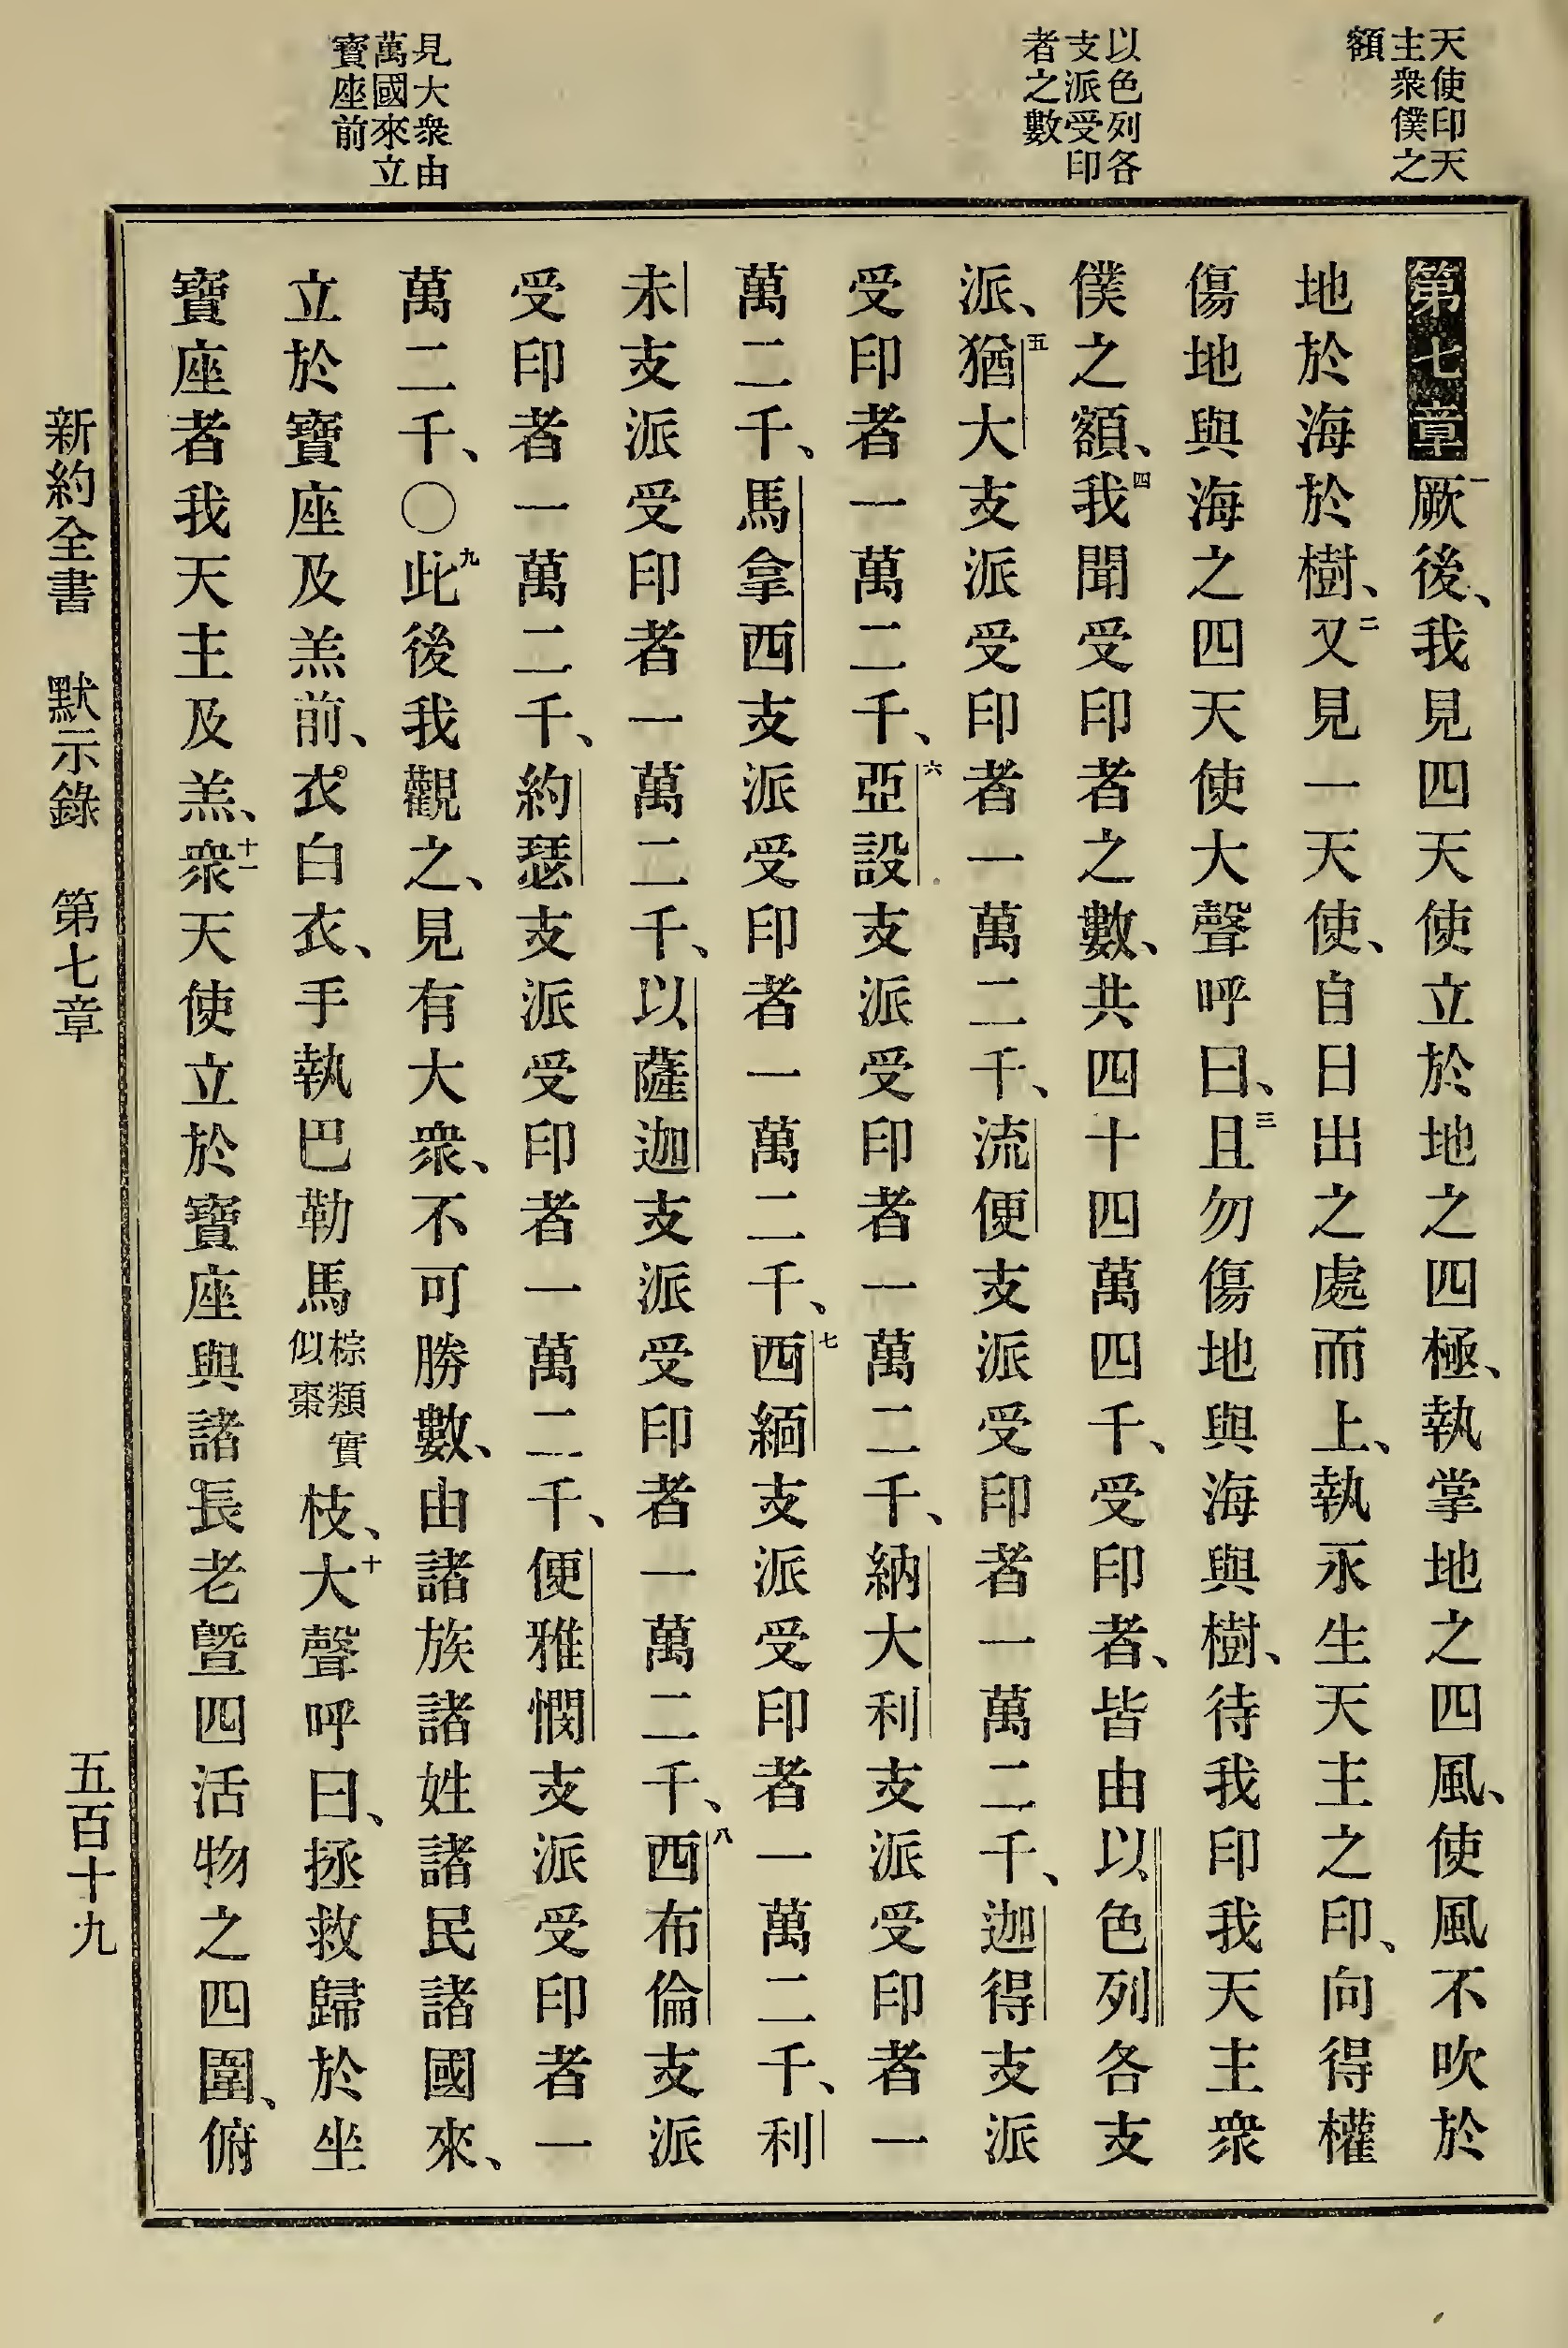 天使印天
主衆僕之
額
以色列各
支派受印
者之數
見大衆由
萬國來立
寶座前
第七章一厥後、我見四天使立於地之四極、執掌地之四風、使風不吹於
地於海於樹、二又見一天使、自日出之處而上、執永生天主之印、向得權
傷地與海之四天使大聲呼曰、三且勿傷地與海與樹、待我印我天主衆
僕之額、四我聞受印者之數、共四十四萬四千、受印者、皆由以色列各支
派、五猶大支派受印者一萬二千、流便支派受印者一萬二千、迦得支派
受印者一萬二千、六亞設支派受印者一萬二千、納大利支派受印者一
萬二千、馬拿西支派受印者一萬二千、七西緬支派受印者一萬二千、利
未支派受印者一萬二千、以薩迦支派受印者一萬二千、八西布倫支派
受印者一萬二千、約瑟支派受印者一萬二千、便雅憫支派受印者一
萬二千、〇九此後我觀之、見有大衆、不可勝數、由諸族諸姓諸民諸國來、
立於寶座及羔前、衣白衣、手執巴勒馬棕類實似棗枝、十大聲呼曰、拯救歸於坐
寶座者我天主及羔、十一衆天使立於寶座與諸長老曁四活物之四圍、俯
新約全書 默示錄 第七章 五百十九